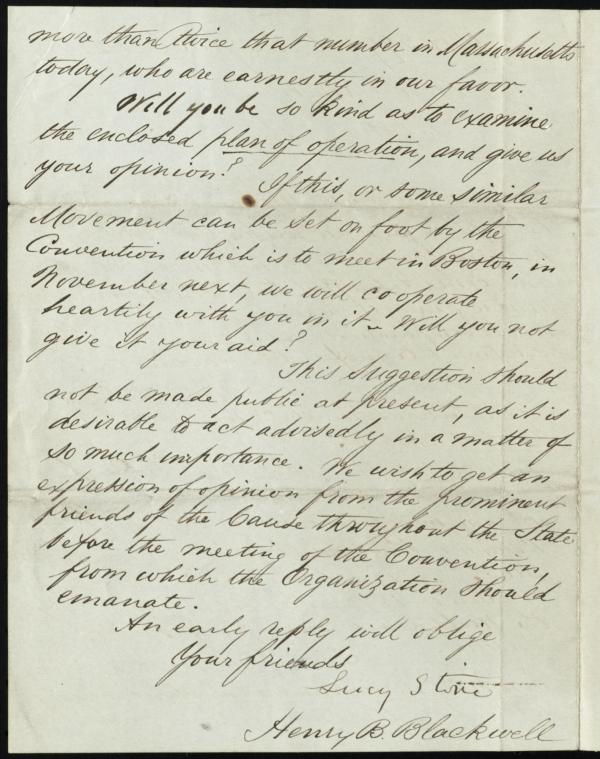 more than twice that number in Massachusetts
today, who are earnestly in our favor.
Will you be so kind as to examine
the enclosed plan of operation, and give us
your opinion? If this, or some similar
Movement can be set on foot by the
Convention which is to meet in Boston, in
November next, we will cooperate
heartily with you in it – Will you not
give it your aid?
This Suggestion should
not be made public at present, as it is
desirable to act advisedly in a matter of
so much importance. We wish to get an
expression of opinion from the prominent
friends of the Cause throughout the State
before the meeting of the Convention,
from which the Organization should
emanate.
An early reply will oblige
Your friends
Lucy Stone
Henry B. Blackwell